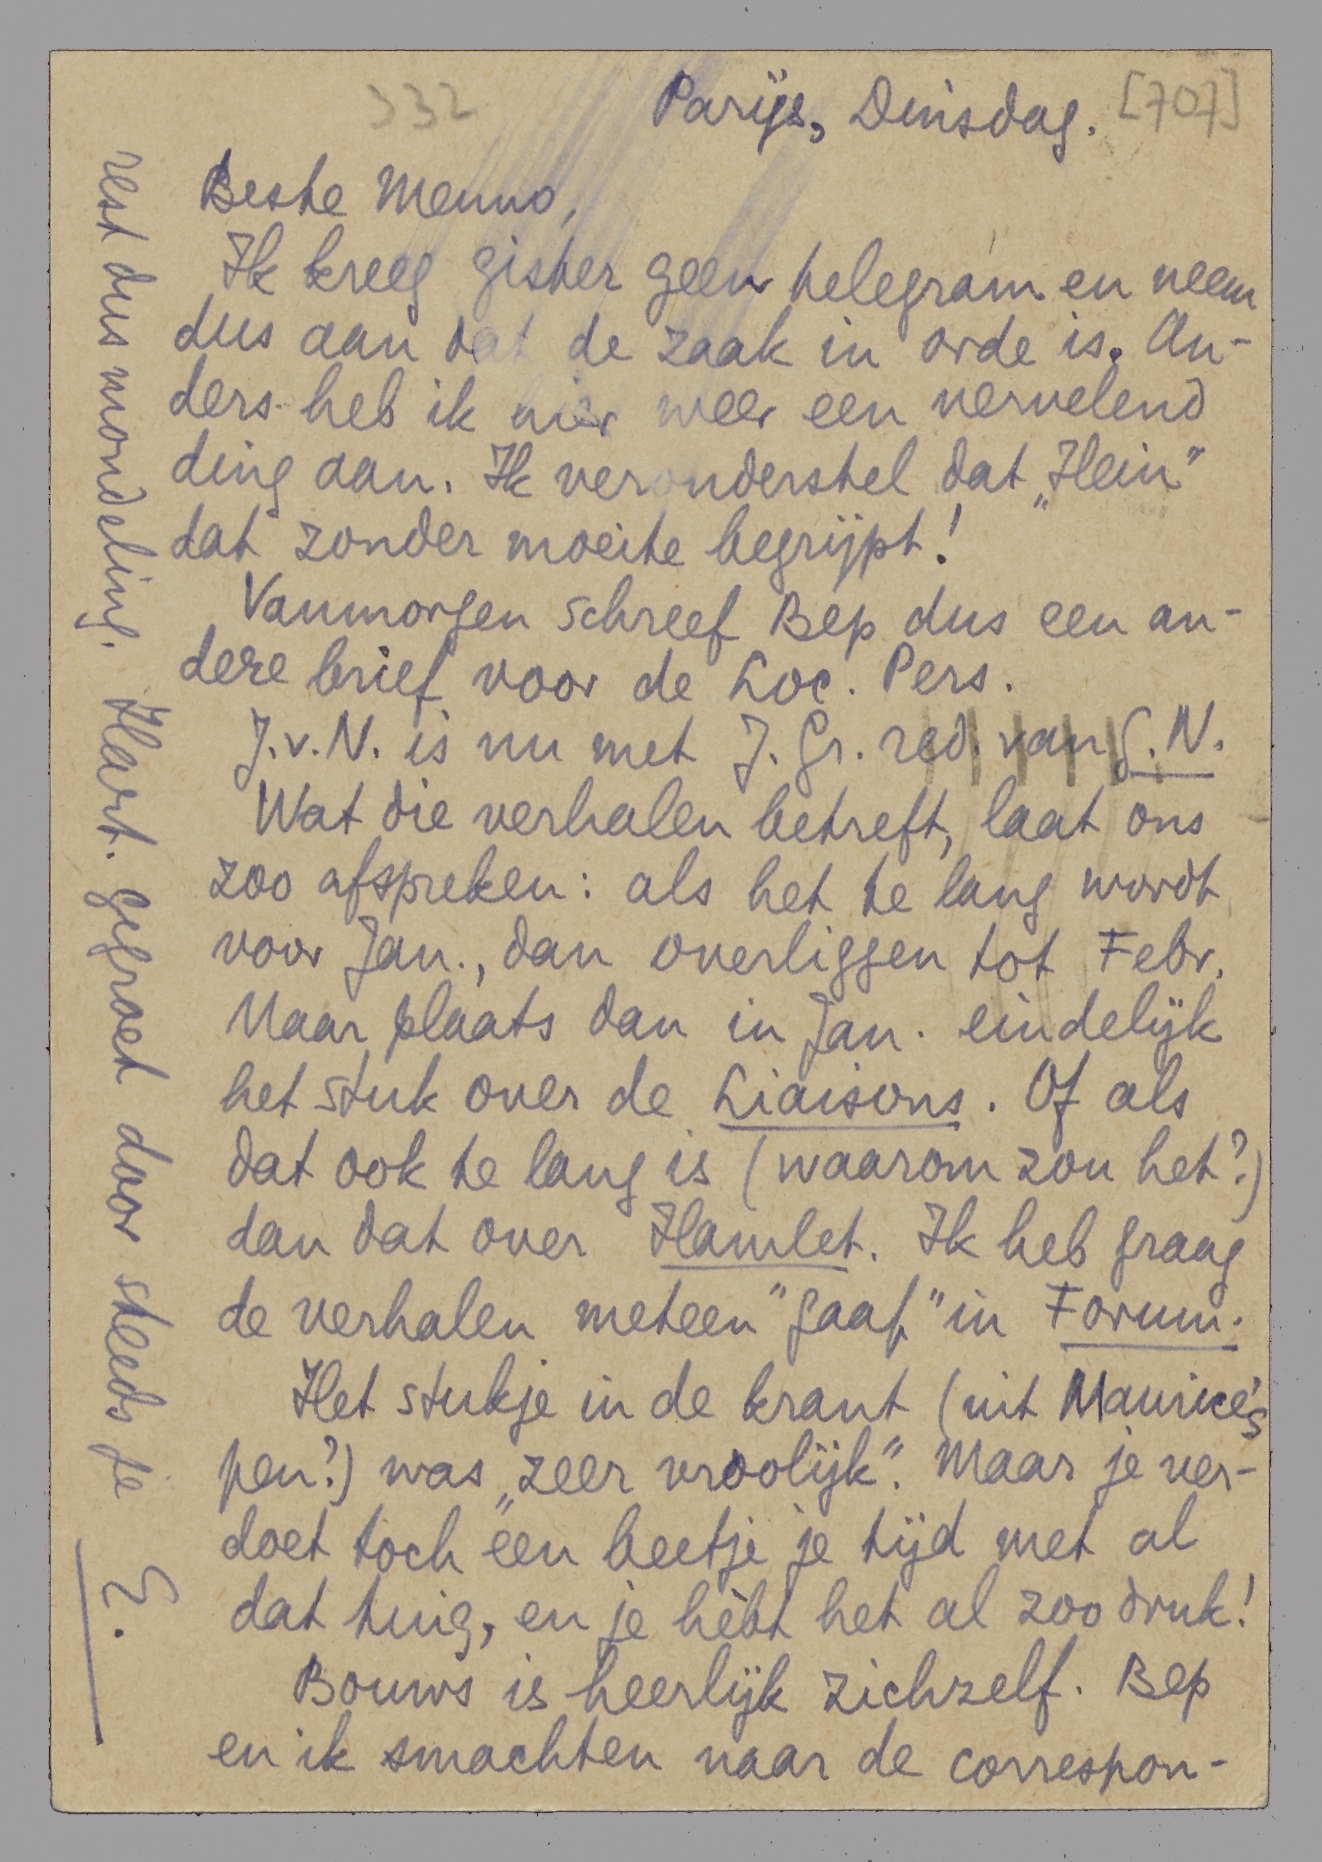 332
Parijs, Dinsdag. [707]
Beste Menno,
Ik kreeg gister geen telegram en neem
dus aan dat de zaak in orde is. An-
ders heb ik hier weer een vervelend
ding aan. Ik veronderstel dat „Hein"
dat zonder moeite begrijpt!
Vanmorgen schreef Bep dus een an-
dere brief voor de Loc. Pers.
J.v.N. is nu met J. Gr. red. van G.N.
Wat die verhalen betreft, laat ons
zoo afspreken: als het te lang wordt
voor Jan., dan overliggen tot Febr.
Maar plaats dan in Jan. eindelijk
het stuk over de Liaisons. Of als
dat ook te lang is (waarom zou het?)
dan dat over Hamlet. Ik heb graag
de verhalen meteen "gaaf" in Forum.
Het stukje in de krant (uit Maurice's
pen?) was „zeer vroolijk". Maar je ver-
doet toch een beetje je tijd met al
dat tuig, en je hèbt het al zoo druk!
Bouws is heerlijk zichzelf. Bep
en ik smachten naar de correspon-
rest dus mondeling. Hart. gegroet door steeds je
E.